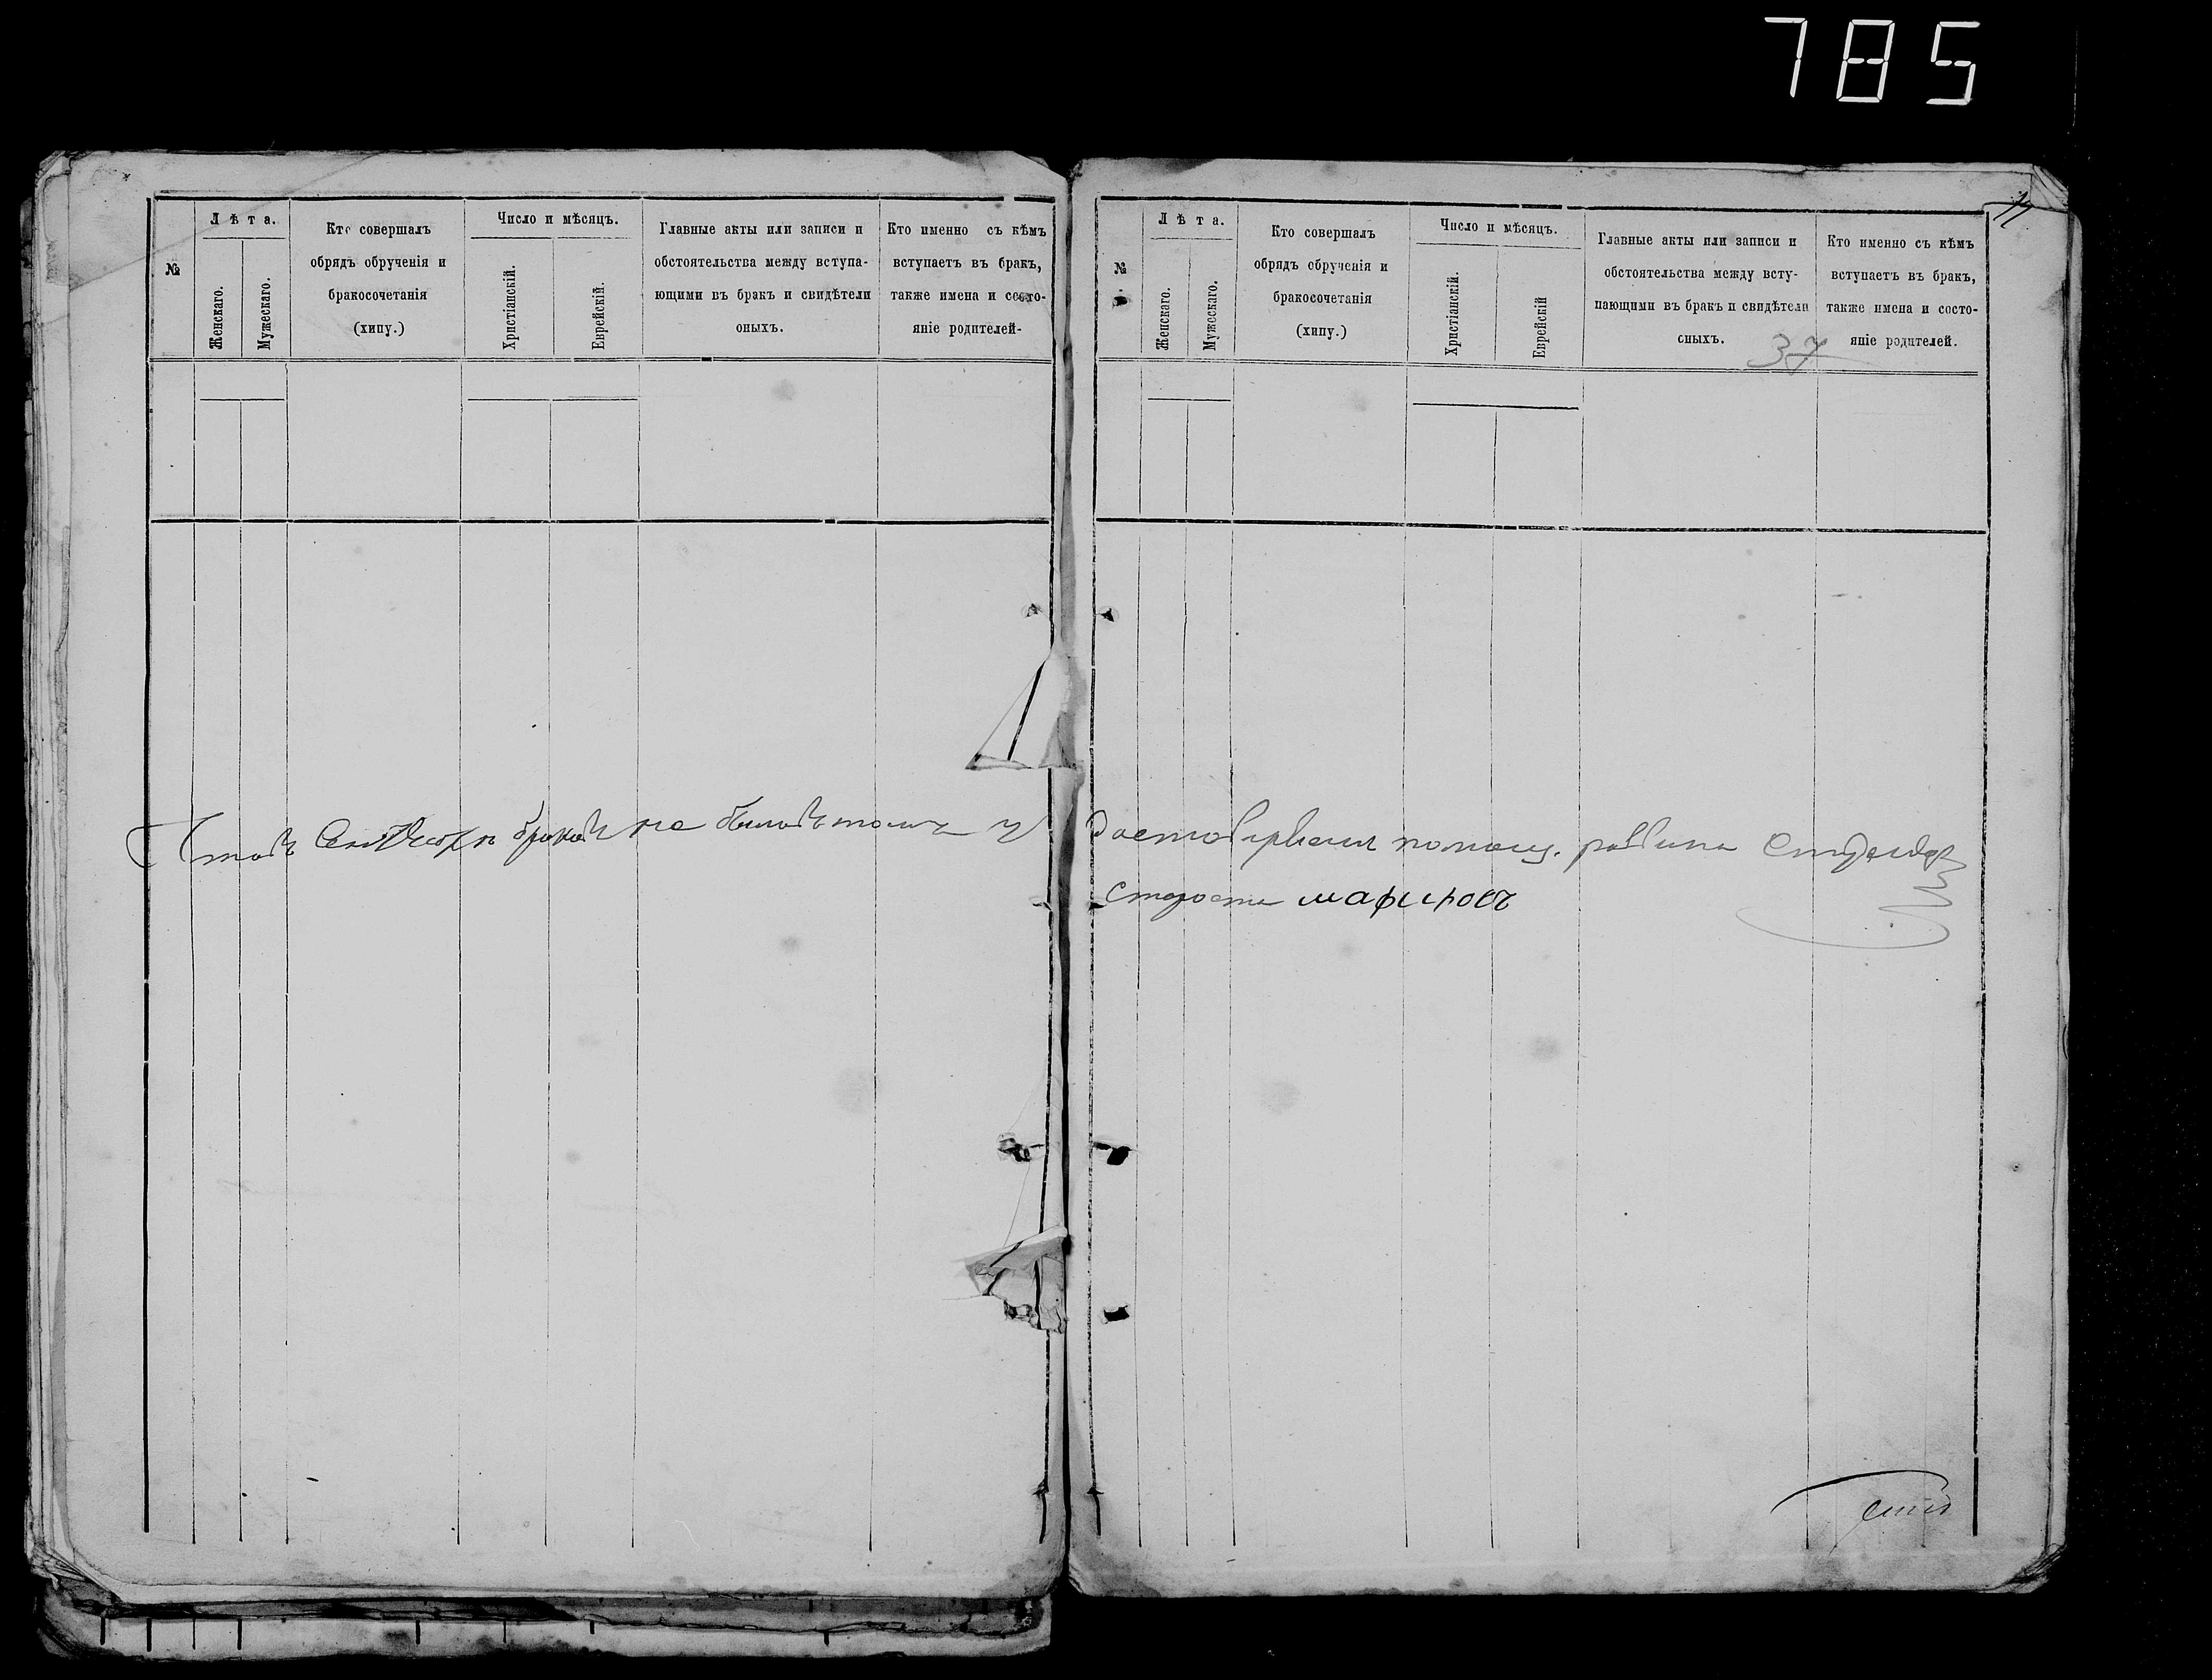 785
№
Лѣта.
Женскаго.
Мужескаго.
Кто совершалъ
обрядъ обрученія и
бракосочетанія
(хипу.)
Число и мѣсяцъ.
Христіанскій.
Еврейскій.
Главные акты или записи и
обстоятельства между вступа-
ющими въ бракъ и свидѣтели
оныхъ.
Кто именно съ кѣмъ
вступаетъ въ бракъ,
также имена и состо-
яніе родителей-
№
Лѣта.
Женскаго.
Мужескаго.
Кто совершалъ
обрядъ обрученія и
бракосочетанія
(хипу.)
Число и мѣсяцъ.
Христіанскій.
Еврейскій
Главные акты или записи и
обстоятельства между всту-
пающими въ бракъ и свидѣтели
оныхъ.
Кто именно съ кѣмъ
вступаетъ въ бракъ,
также имена и состо-
яніе родителей.
37
браковъ не было въ томъ у достовѣряемъ помощ. раввина
Староста